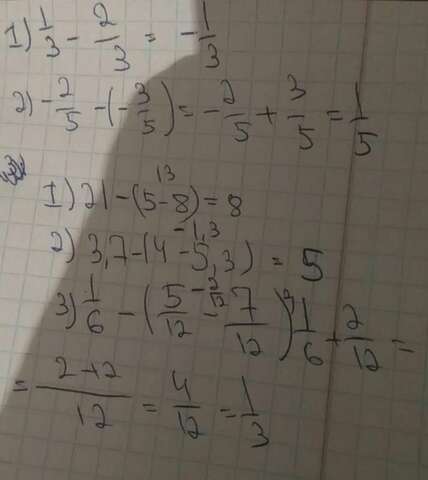 1) 1/3 - 2/3 = -1/3
2) -2/5 - (-3/5) = -2/5 + 3/5 = 1/5
13
1) 21 - (5-8) = 8
-1,3
2) 3,7 - (4-5,3) = 5
-2/12
3) 1/6 - (5/12 - 7/12) = 1/6 + 2/12 =
= 2+2/12 = 4/12 = 1/3